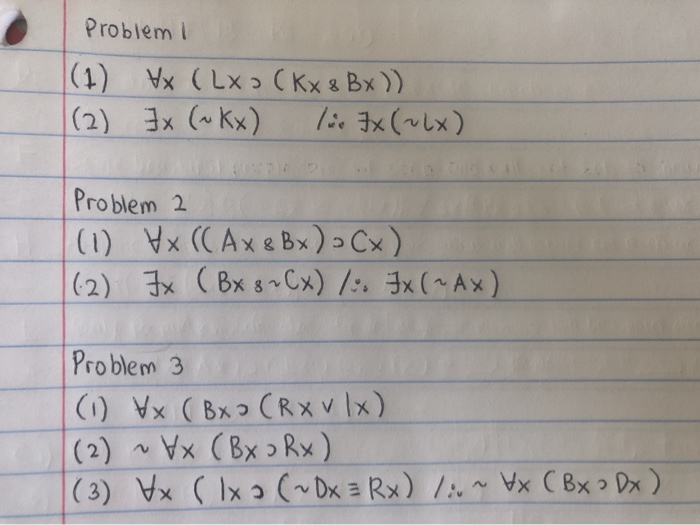 Problem 1
(1) ∀x (Lx ⊃ (Kx & Bx))
(2) ∃x (~Kx) /∴ ∃x(~Lx)
Problem 2
(1) ∀x ((Ax & Bx) ⊃ Cx)
(2) ∃x (Bx & ~Cx) /∴ ∃x(~Ax)
Problem 3
(1) ∀x (Bx ⊃ (Rx ∨ Ix)
(2) ~ ∀x (Bx ⊃ Rx)
(3) ∀x (Ix ⊃ (~Dx ≡ Rx) /∴ ~ ∀x (Bx ⊃ Dx)